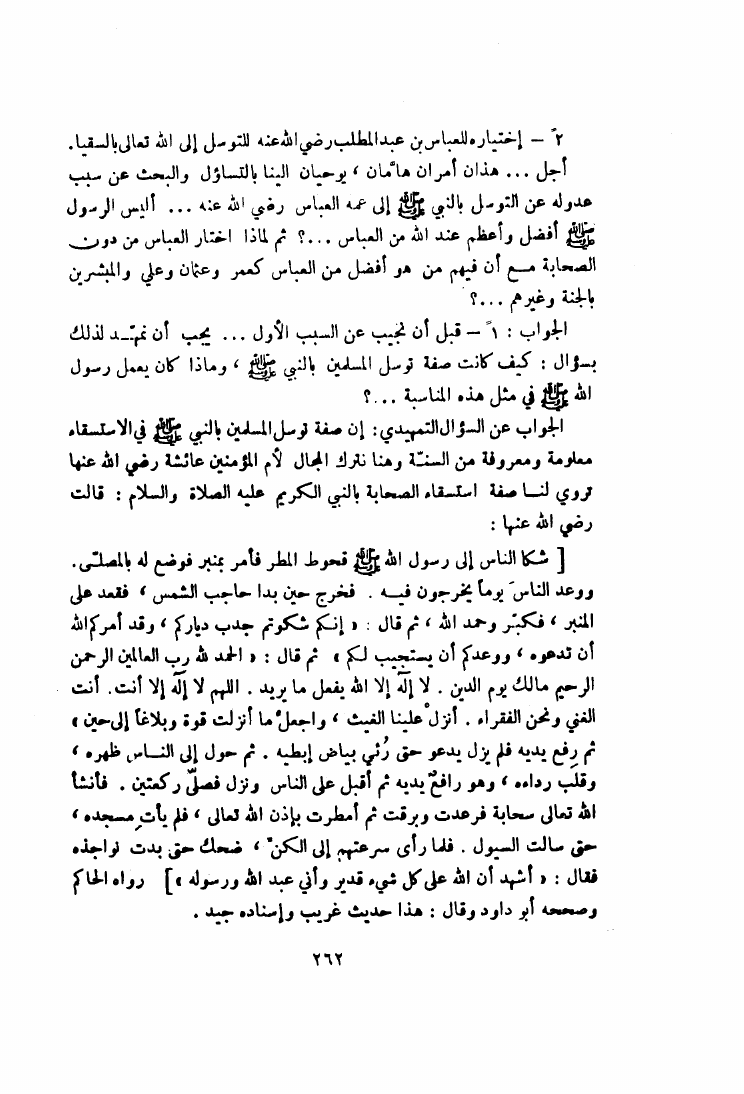 ٢ً – إختياره للعباس بن عبدالمطلب رضي الله عنه للتوسل إلى الله تعالى بالسقيا.
أجل ... هذان أمران هامّان ، يوحيان الينا بالتساؤل والبحث عن سبب
عدوله عن التوسل بالنبي ﷺ إلى عمه العباس رضي الله عنه ... أليس الرسول
ﷺ أفضل وأعظم عند الله من العباس ...؟ ثم لماذا اختار العباس من دون
الصحابة مع أن فيهم من هو أفضل من العباس كعمر وعثمان وعلي والمبشرين
بالجنة وغيرهم ...؟
الجواب : ١ً – قبل أن نجيب عن السبب الأول ... يجب أن نمهّد لذلك
بسؤال : كيف كانت صفة توسل المسلمين بالنبي ﷺ ، وماذا كان يعمل رسول
الله ﷺ في مثل هذه المناسبة ...؟
الجواب عن السؤال التمهيدي : إن صفة توسل المسلمين بالنبي ﷺ في الاستسقاء
معلومة ومعروفة من السنّة وهنا نترك المجال لأم المؤمنين عائشة رضي الله عنها
تروي لنا صفة استسقاء الصحابة بالنبي الكريم عليه الصلاة والسلام : قالت
رضي الله عنها :
[ شكا الناس إلى رسول الله ﷺ قحوط المطر فأمر بمنبر فوضع له بالمصلّى .
ووعد الناسَ يوماً يخرجون فيه . فخرج حين بدا حاجب الشمس ، فقعد على
المنبر ، فكبّر وحمد الله ، ثم قال : « إنكم شكوتم جدب دياركم ، وقد أمركم الله
أن تدعوه ، ووعدكم أن يستجيب لكم » ثم قال : « الحمد لله رب العالمين الرحمن
الرحيم مالك يوم الدين . لا إلَه إلا الله يفعل ما يريد . اللهم لا إلَه إلا أنت. أنت
الغني ونحن الفقراء . أنزلْ علينا الغيث ، واجعلْ ما أنزلت قوة وبلاغاً إلى حين »
ثم رفع يديه فلم يزل يدعو حتى رُئي بياض إبطيه . ثم حول إلى الناس ظهره ،
وقلب رداءه ، وهو رافعٌ يديه ثم أقبل على الناس ونزل فصلّى ركعتين . فأنشأ
الله تعالى سحابة فرعدت وبرقت ثم أمطرت بإذن الله تعالى ، فلم يأتِ مسجده ،
حتى سالت السيول . فلما رأى سرعتهم إلى الكنّ ، ضحك حتى بدت نواجذه
فقال : « أشهد أن الله على كل شيء قدير وأني عبد الله ورسوله » ] رواه الحاكم
وصححه أبو داود وقال : هذا حديث غريب وإسناده جيد .
٢٦٢